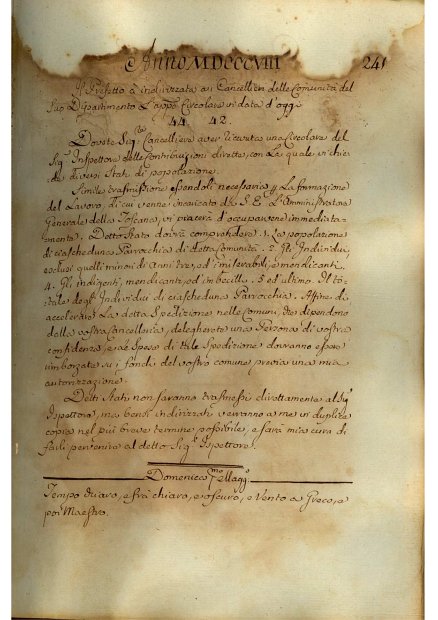 Anno MDCCCVIII
241
Il Prefetto à indirizzata ai Cancellieri delle Comunità del
Suo Dipartimento L'app.ᵃ Circolare di data d'oggi
44. 42.
Dovete Sig.ʳᵉ Cancelliere aver ricevuta una Circolare del
Sig.ʳ Inspettore delle Contribuzioni dirette, con La quale vi chie-
de diversi Stati di popolazione.
Simile trasmissione essendoli necessaria p. La formazione
del Lavoro di cui venne incaricato da S. E. L'Amministratore
Generale della Toscana, vi piacerà d'occuparvene immediata-
mente. Detto Stato dovrà comprendere: 1. La popolazione
di ciascheduna Parrocchia di detta Comunità. 2. Gli Individui
esclusi quelli minori di Anni tre, ed i miserabili, e mendicanti.
4. Gli indigenti, mendicanti, ed imbecilli. 5. ed ultimo. Il to-
tale degl'Individui di ciascheduna Parrocchia. Affine di
accelerare La detta Spedizione nelle Comuni, che dipendono
dalla vostra Cancelleria, delegherete una Persona di vostra
confidenza, e le Spese di tale Spedizione dovranno essere
rimborzate su i fondi del vostro comune previa una mia
autorizzazione.
Detti Stati non saranno trasmessi direttamente al Sig.ʳ
Ispettore, ma bensì indirizzati verranno a me in duplice
copia nel più breve termine possibile, e sarà mia cura di
farli pervenire al detto Sig.ʳ Ispettore.
Domenica Pmo Magg.º
Tempo chiaro, e frà chiaro, e oscuro, e Vento a Greco, e
poi Maestro.